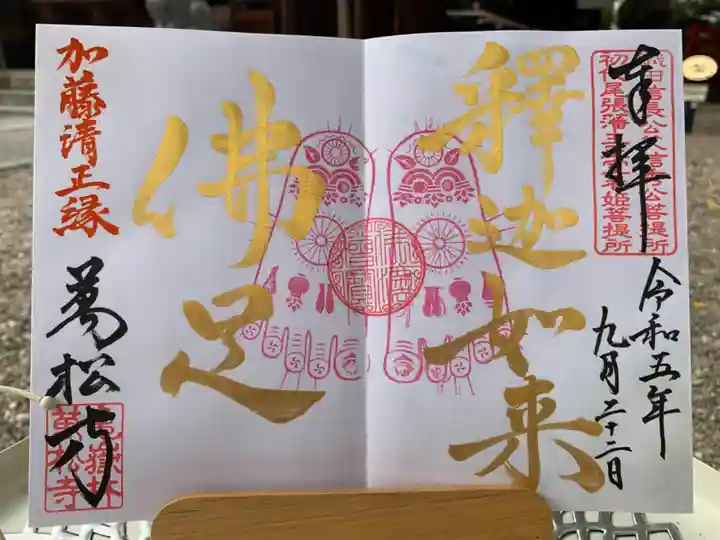 奉拝
織田信長公父信秀公菩提所
初代尾張藩主義直公春姫菩提所
令和五年
九月二十二日
釋迦如来
佛足
加藤清正縁
萬松寺
亀嶽林
萬松寺